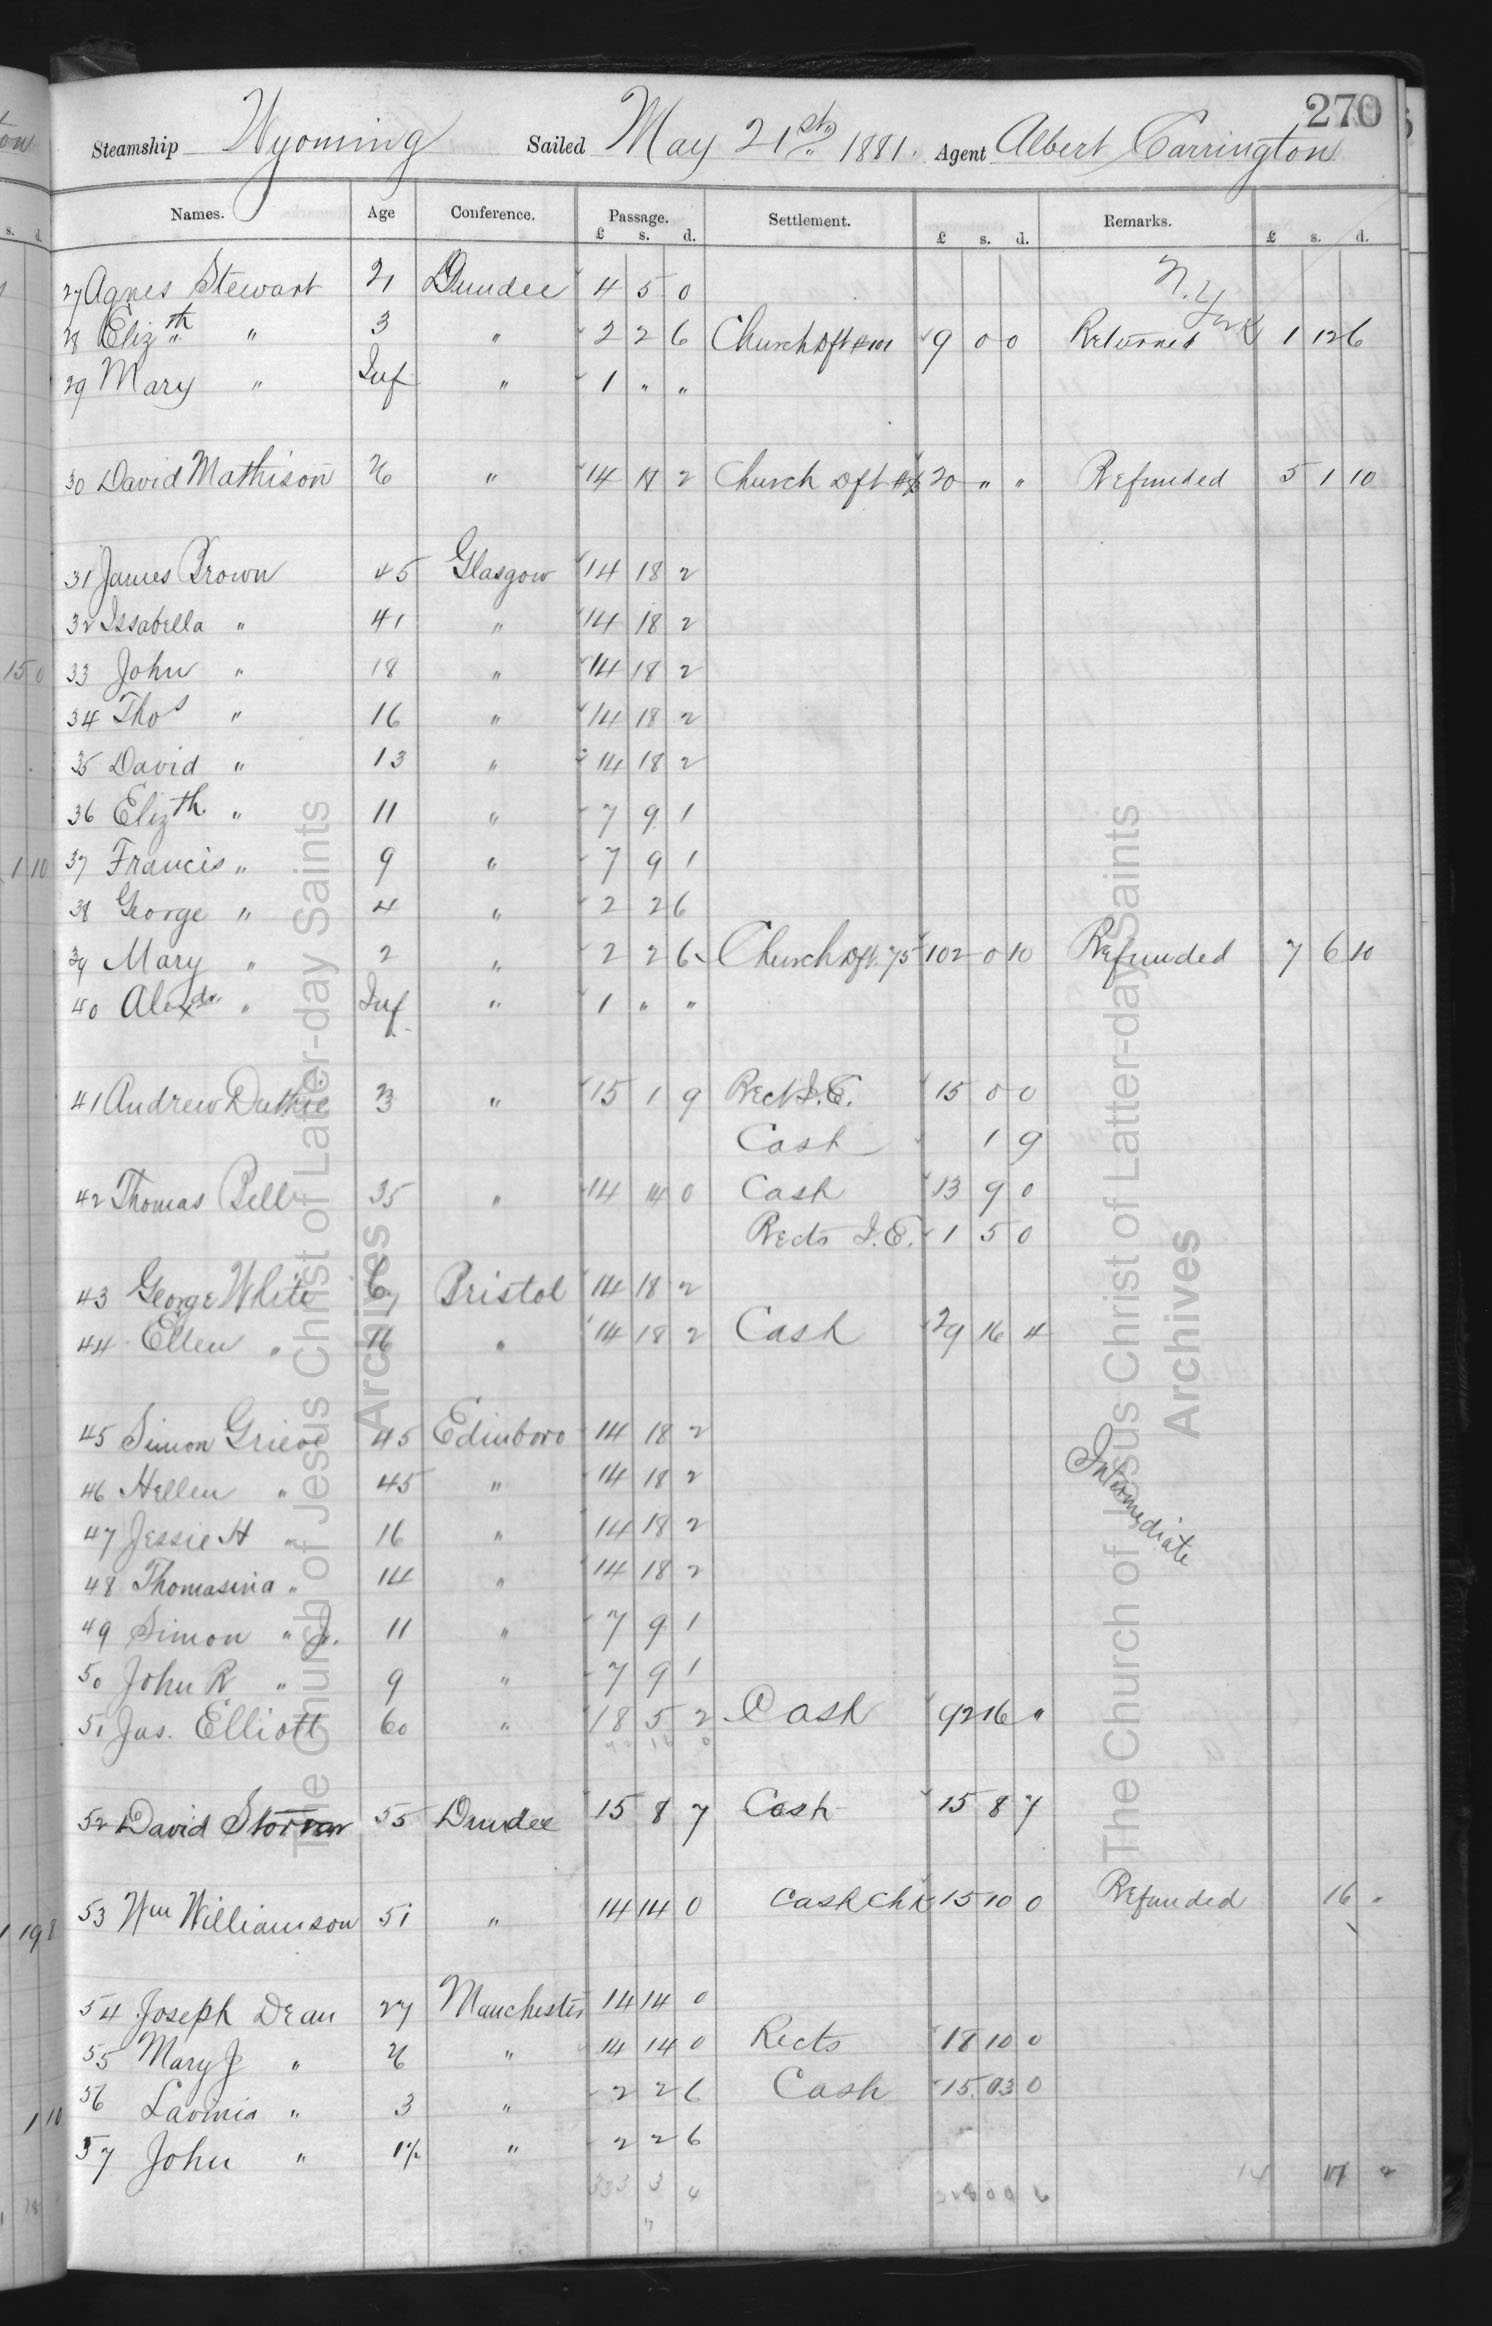 270
Steamship Wyoming Sailed May 21st 1881. Agent Albert Carrington
Names. Age Conference. Passage. Settlement. Remarks.
£ s. d. £ s. d. £ s. d.
27 Agnes Stewart 21 Dundee 4 5 0 N. York
28 Elizth " 3 " 2 2 6 Church Dft 9 0 0 Returned 1 12 6
29 Mary " Inf " 1 " "
30 David Mathison " 14 18 2 Church Dft 20 " " Refunded 5 1 10
31 James Brown 45 Glasgow 14 18 2
32 Issabella " 41 " 14 18 2
33 John " 18 " 14 18 2
34 Thos " 16 " 14 18 2
35 David " 13 " 14 18 2
36 Elizth. " 11 " 7 9 1
37 Francis " 9 " 7 9 1
38 George " 4 " 2 2 6
39 Mary " 2 " 2 2 6 Church Dft. 75 102 0 10 Refunded 7 6 10
40 Alexdr " Inf " 1 " "
41 Andrew Duthie " 15 1 9 Rect I.E. 15 0 0
Cash 1 9
42 Thomas Bell 35 " 14 14 0 Cash 13 9 0
Rects I.E. 1 5 0
43 George White Bristol 14 18 2
44 Ellen " 16 " 14 18 2 Cash 29 16 4
45 Simon Grieve 45 Edinboro 14 18 2
46 Hellen " 45 " 14 18 2 Intermediate
47 Jessie H " 16 " 14 18 2
48 Thomasina " 14 " 14 18 2
49 Simon " J. 11 " 7 9 1
50 John R " 9 " 7 9 1
51 Jas. Elliott 60 " 18 5 2 Cash 92 16 "
52 David Storrar 55 Dundee 15 8 7 Cash 15 8 7
53 Wm Williamson 51 " 14 14 0 Cash Chk 15 10 0 Refunded 16 "
54 Joseph Dean 27 Manchester 14 14 0
55 Mary J " " 14 14 0 Rects 18 10 0
56 Lavinia " 3 " 2 2 6 Cash 15 03 0
57 John " 1½ " 2 2 6
The Church of Jesus Christ of Latter-day Saints
Archives
The Church of Jesus Christ of Latter-day Saints
Archives